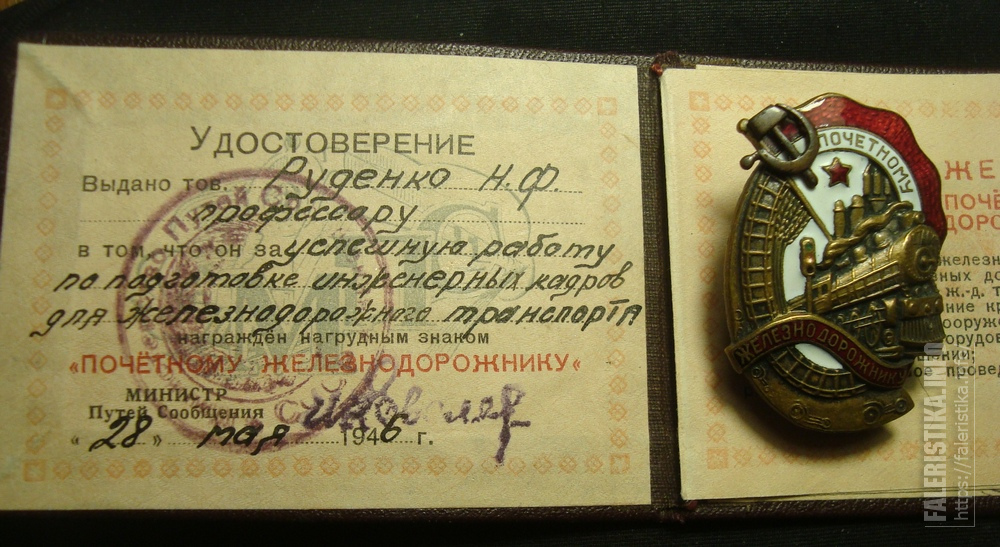 УДОСТОВЕРЕНИЕ
Выдано тов. Руденко Н.Ф.
профессору
в том, что он за успешную работу
по подготовке инженерных кадров
для железнодорожного транспорта
награждён нагрудным знаком
"ПОЧЁТНОМУ ЖЕЛЕЗНОДОРОЖНИКУ"
МИНИСТР
Путей Сообщения
"28" мая 1946 г.
ПОЧЕТНОМУ
ЖЕЛЕЗНОДОРОЖНИКУ
ЖЕ
ПОЧЁ
ДОРО
железн
ж.-д. т
ние кр
вооруж
орудов
ое провед
FALERISTIKA.INFO
https://faleristika.info